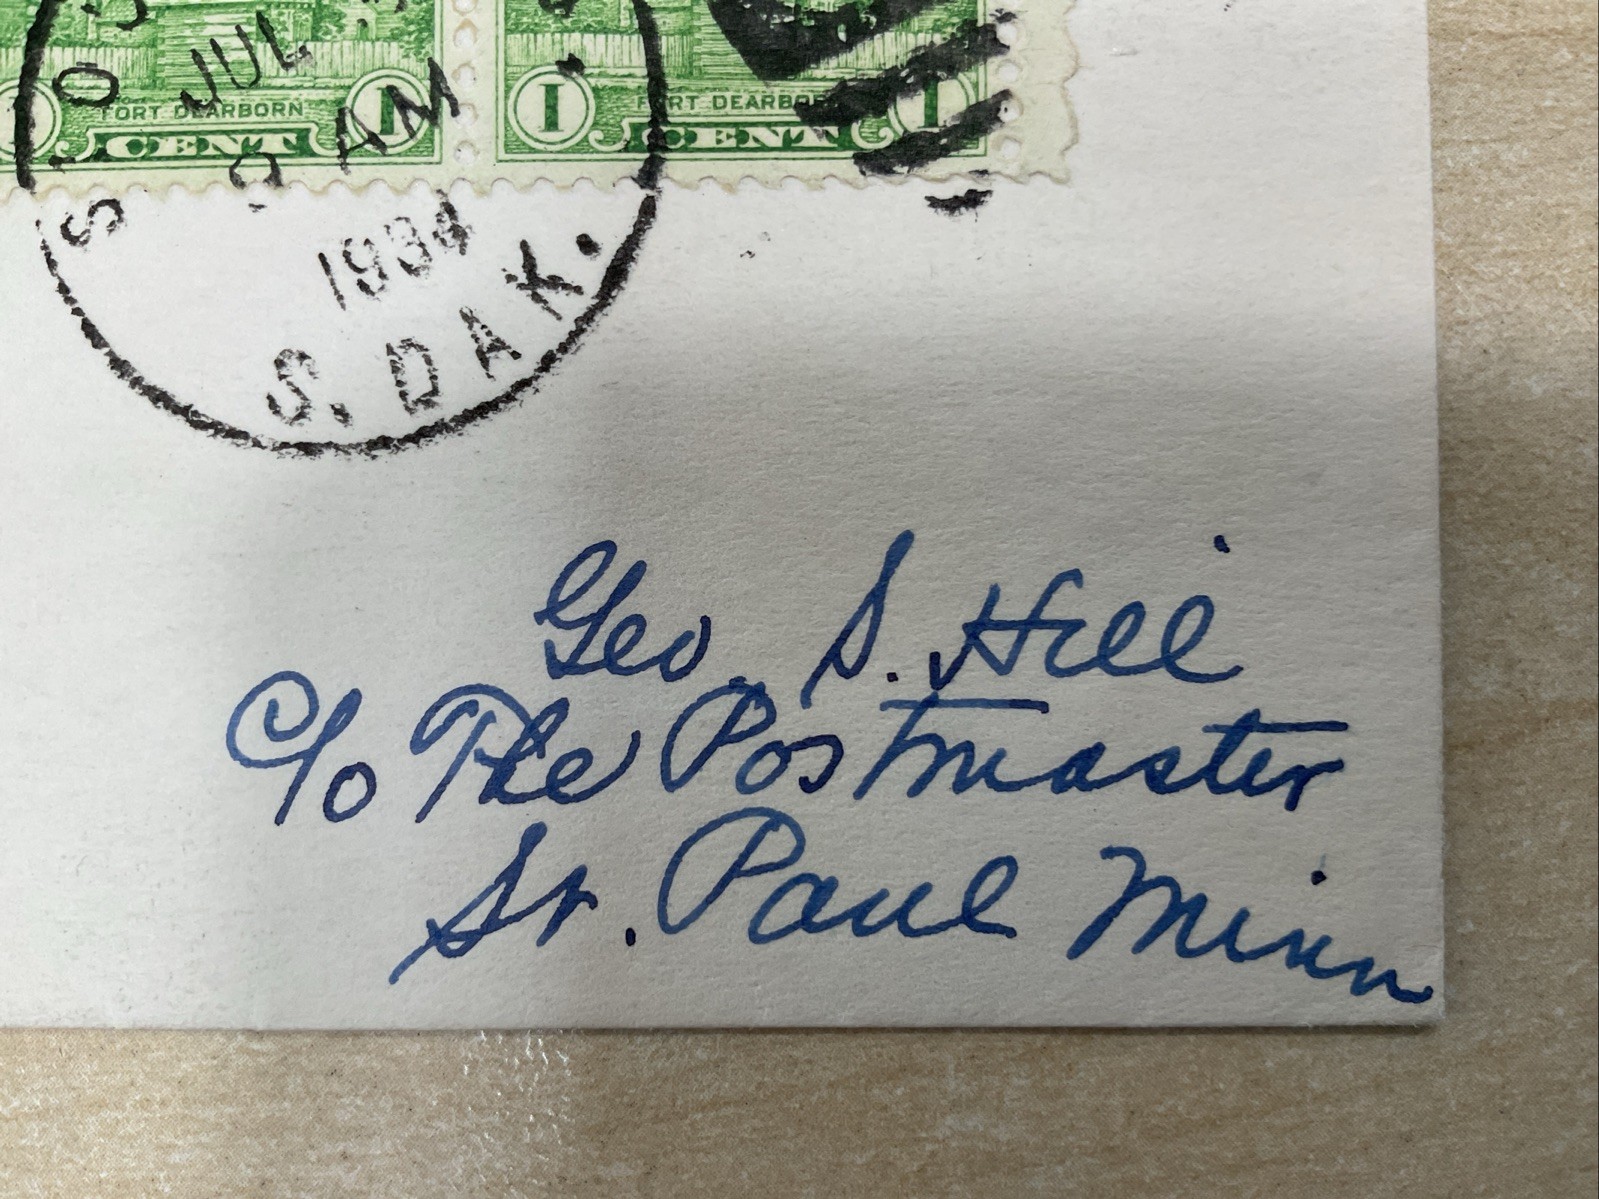 1 FORT DEARBORN 1
CENT
1 FORT DEARBORN 1
CENT
JUL
AM
1934
S. DAK.
Geo. S. Hill
C/o The Postmaster
St. Paul Minn